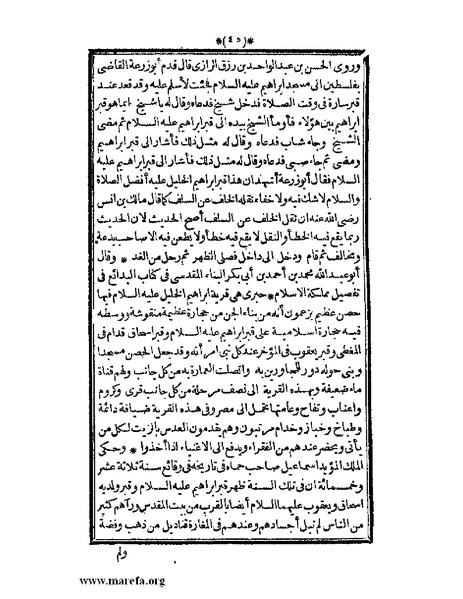 *(٤٥)*
وروى الحسن بن عبد الواحد بن رزق الرازى قال قدم أبو زرعة القاضى
بفلسطين الى مسجد ابراهيم عليه السلام فجئت لأسلم عليه وقد قعد عند
قبر سارة فى وقت الصلاة فدخل شيخ فدعاه وقال له ياشيخ ايما هو قبر
ابراهيم من هؤلاء فأومأ الشيخ بيده الى قبر ابراهيم عليه السلام ثم مضى
الشيخ وجاء شاب فدعاه وقال له مثل ذلك فأشار الى قبر ابراهيم
ومضى ثم جاء صبى فدعاه وقال له مثل ذلك فأشار الى قبر ابراهيم عليه
السلام فقال أبو زرعة أشهد ان هذا قبر ابراهيم الخليل عليه أفضل الصلاة
والسلام لاشك فيه ولا خفاء نقله الخلف عن السلف كما قال مالك بن انس
رضى الله عنه ان نقل الخلف عن السلف أصح الحديث لان الحديث
ربما يقع فيه الخطأ والنقل لا يقع فيه خطأ ولا يطعن فيه الا صاحب بدعة
ومخالف ثم قام ودخل الى داخل فصلى الظهر ثم رحل من الغد * وقال
أبو عبد الله محمد بن أحمد بن أبى بكر البناء المقدسى فى كتاب البدائع فى
تفصيل مملكة الاسلام * حبرى هى قرية ابراهيم الخليل عليه السلام فيها
حصن عظيم يزعمون أنه من بناء الجن من حجارة عظيمة منقوشة ووسطه
قبة حجارة اسلامية على قبر ابراهيم عليه السلام وقبر اسحاق قدام فى
المغطى وقبر يعقوب فى المؤخر عند كل نبى امرأته وقد جعل الحصن مسجدا
وبنى حوله دور للمجاورين به واتصلت العمارة به من كل جانب ولهم قناة
ماء ضعيفة وبهذه القرية الى نصف مرحلة من كل جانب قرى وكروم
واعناب وتفاح وعامتها تحمل الى مصر وفى هذه القرية ضيافة دائمة
وطباخ وخباز وخدام مرتبون وهم يقدمون العدس بالزيت لكل من
يأتى ويحضر عندهم من الفقراء ويدفع الى الاغنياء اذا أخذوا * وحكى
الملك المؤيد اسماعيل صاحب حماه فى تاريخه فى وقائع سنة ثلاثة عشر
وخمسمائة ان فى تلك السنة ظهر قبر ابراهيم عليه السلام وقبر ولديه
اسحاق ويعقوب عليهما السلام أيضا بالقرب من بيت المقدس ورآهم كثير
من الناس لم تبل أجسادهم وعندهم فى المغارة قناديل من ذهب وفضة
ولم
www.marefa.org